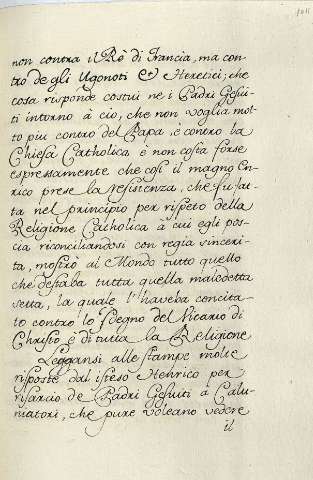 non contra il Rò di Francia, ma con
tro de gli Ugonoti et Heretici, che
cosa risponde costui ne i Padri Gesui
ti intorno à ciò, che non voglia mol
to piu contro del Papa, è contro la
Chiesa Catholica, è non costa forse
espressamente che così il magno En
rico prese la resisienza, che fu fat
ta nel principio per rispeto della
Religione Catholica à cui egli pos
cia riconciliandosi con regia sinceri
ta, mostrò al Mondo tutto quello
che desiaba tutta quella maledetta
setta, la quale l'haveba concita
to contro lo sdegno del Vicario di
Christo è di tutta la Religione
Leggansi alle stampe molte
risposte dal isteso Hehrico per
risarcio de Padri Gesuiti à Calu
niatori, che pure voleano vedere
il